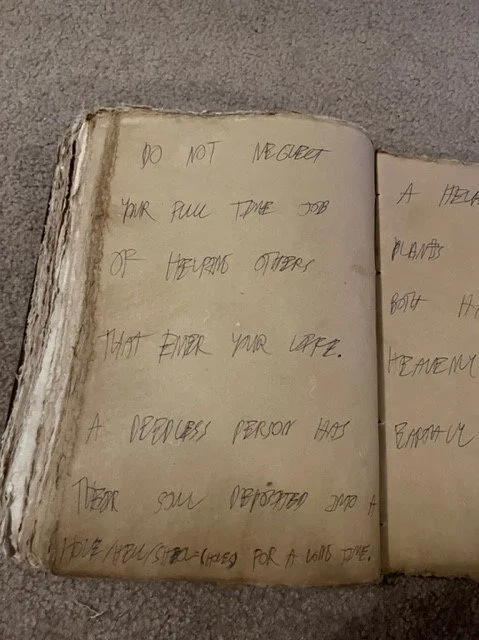 DO NOT NEGLECT
YOUR FULL TIME JOB
OF HELPING OTHERS
THAT ENTER YOUR LIFE.
A DEEDLESS PERSON HAS
THEIR SOUL DEPOSITED INTO A
HOLE/HELL/SHEOL=(HOLE) FOR A LONG TIME.
A
PLANTS
BOTH
HEAVENLY
EARTHLY